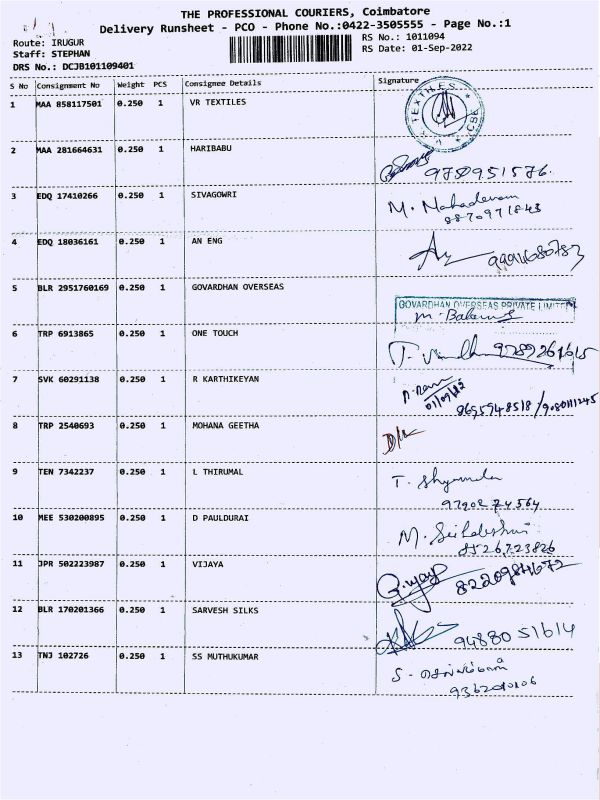 THE PROFESSIONAL COURIERS, Coimbatore
Delivery Runsheet - PCO - Phone No.:0422-3505555 - Page No.:1
Route: IRUGUR
Staff: STEPHAN
DRS No.: DCJB101109401
RS No.: 1011094
RS Date: 01-Sep-2022
S No Consignment No Weight PCS Consignee Details Signature
1 MAA 858117501 0.250 1 VR TEXTILES
TEXTILES CBE
2 MAA 281664631 0.250 1 HARIBABU
9750951576.
3 EDQ 17410266 0.250 1 SIVAGOWRI
M. Mahadevan
8870971843
4 EDQ 18036161 0.250 1 AN ENG
9994680783
5 BLR 2951760169 0.250 1 GOVARDHAN OVERSEAS
GOVARDHAN OVERSEAS PRIVATE LIMITED
6 TRP 6913865 0.250 1 ONE TOUCH
9789261615
7 SVK 60291138 0.250 1 R KARTHIKEYAN
01/09/22
8695948518/9080111245
8 TRP 2540693 0.250 1 MOHANA GEETHA
D/L
9 TEN 7342237 0.250 1 L THIRUMAL
T. Shyamala
9790274564
10 MEE 530200895 0.250 1 D PAULDURAI
8526723826
11 JPR 502223987 0.250 1 VIJAYA
8220984672
12 BLR 170201366 0.250 1 SARVESH SILKS
9488051614
13 TNJ 102726 0.250 1 SS MUTHUKUMAR